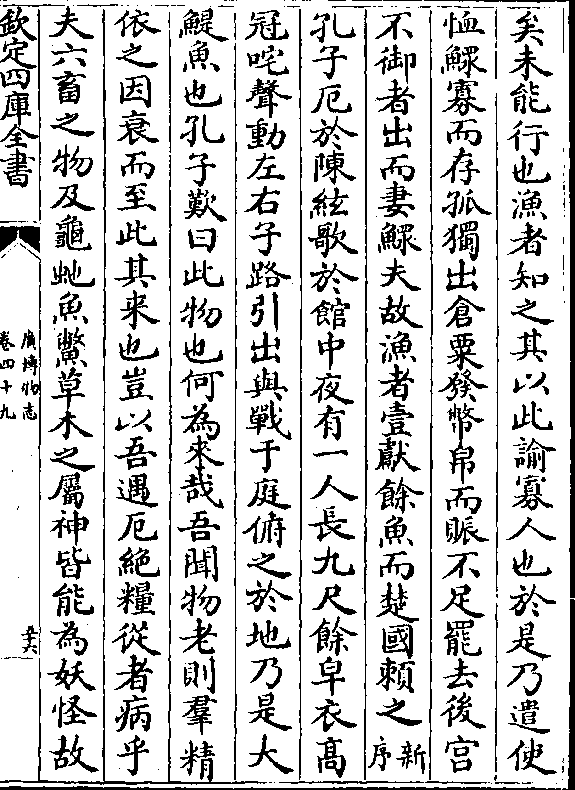 矣未能行也漁者知之其以此諭寡人也於是乃遣使
恤鰥寡而存孤獨出倉粟發幣帛而賑不足罷去後宮
不御者出而妻鰥夫故漁者壹獻餘魚而楚國賴之新序
孔子厄於陳絃歌於館中夜有一人長九尺餘皁衣髙
冠咤聲動左右子路引出與戰于庭俯之於地乃是大
鯷魚也孔子歎曰此物也何為來哉吾聞物老則羣精
依之因衰而至此其来也豈以吾遇厄絶糧從者病乎
夫六畜之物及龜虵魚鱉草木之屬神皆能為妖怪故
欽定四庫全書
廣博物志
卷四十九